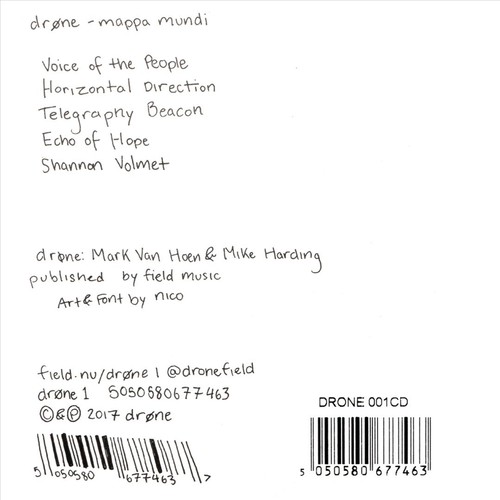 drøne - mappa mundi
Voice of the People
Horizontal Direction
Telegraphy Beacon
Echo of Hope
Shannon Volmet
drøne: Mark Van Hoen & Mike Harding
published by field music
Art & Font by nico
field.nu/drøne | @dronefield
drøne 1 5050580677463
©&℗ 2017 drøne
DRONE 001CD
5 050580 677463 >
5 050580 677463